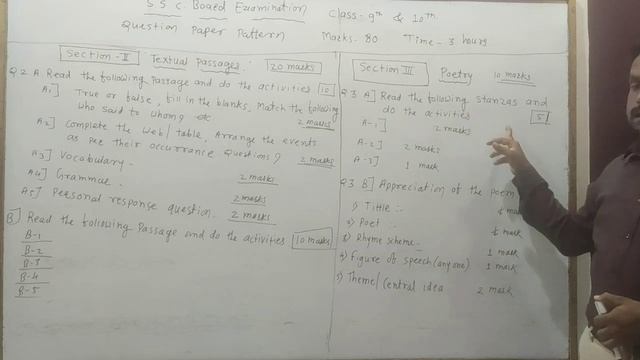 S S C. Board Examination
Class - 9th & 10th.
Question Paper Pattern
Marks. 80
Time - 3 hours
Section - II
Textual passages.
20 marks
Q 2 A Read the following Passage and do the activities 10
A1] True or false, fill in the blanks, Match the following
who said to whom? etc
2 marks
A2] Complete the web/table, Arrange the events
as per their occurrance Questions?
2 marks
A3] Vocabulary.
2 marks
A4] Grammar.
2 marks
A5] Personal response question.
2 marks
B] Read the following Passage and do the activities 10 marks
B-1
B-2
B-3
B-4
B-5
Section III
Poetry
10 marks
Q 3 A] Read the following stanzas and
do the activities
5
A-1]
2 marks
A-2]
2 marks
1 mark
Q3 B] Appreciation of the poem.
1) Tittle :-
½ mark
2) Poet :-
½ mark
3) Rhyme scheme :-
1 mark
4) Figure of speech (any one)
1 mark
5) Theme/Central idea
2 mark